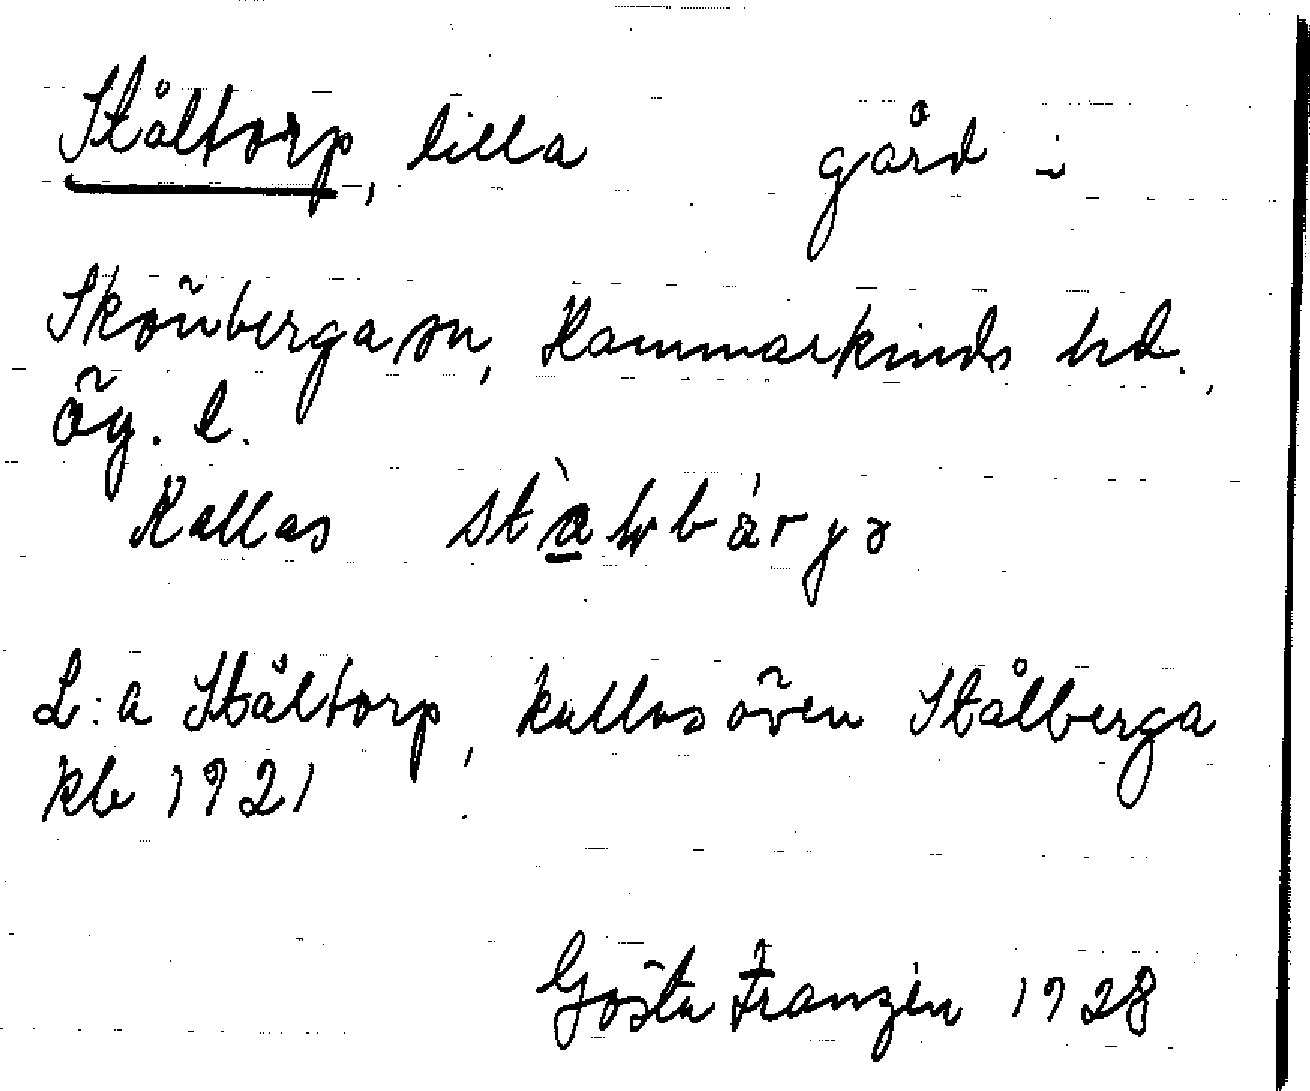 Ståltorp, lilla gård i
Skönberga sn, Hammarkinds hd.,
Ög. l.
Kallas
L:a Ståltorp, kallas även Stålberga
kb 1921
Gösta Franzén 1928